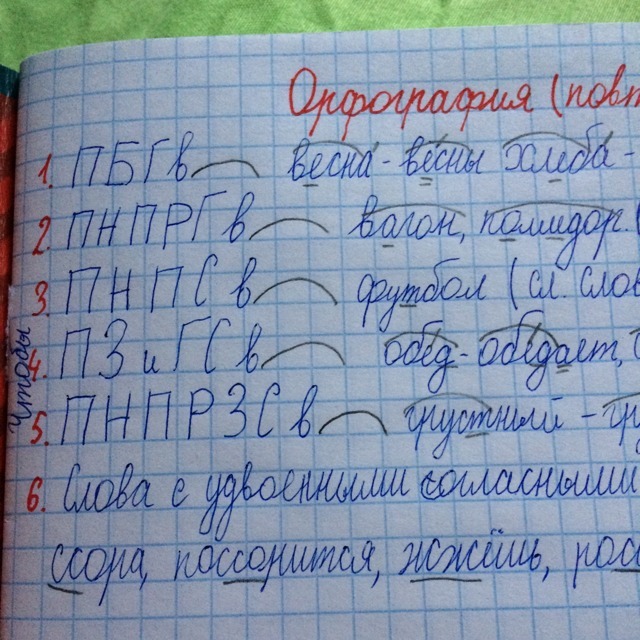 Орфография (повт
1. ПБГ в весна́ - ве́сны хлеба́ -
2. ПНПРГ в вагон, помидор. (
3. ПНПС в футбол (сл. слов
4. ПЗ и ГС в обед - обедает,
5. ПНПРЗС в грустный - гру
6. Слова с удвоенными согласными
ссора, поссорится, жжёшь, росс
Чтобы